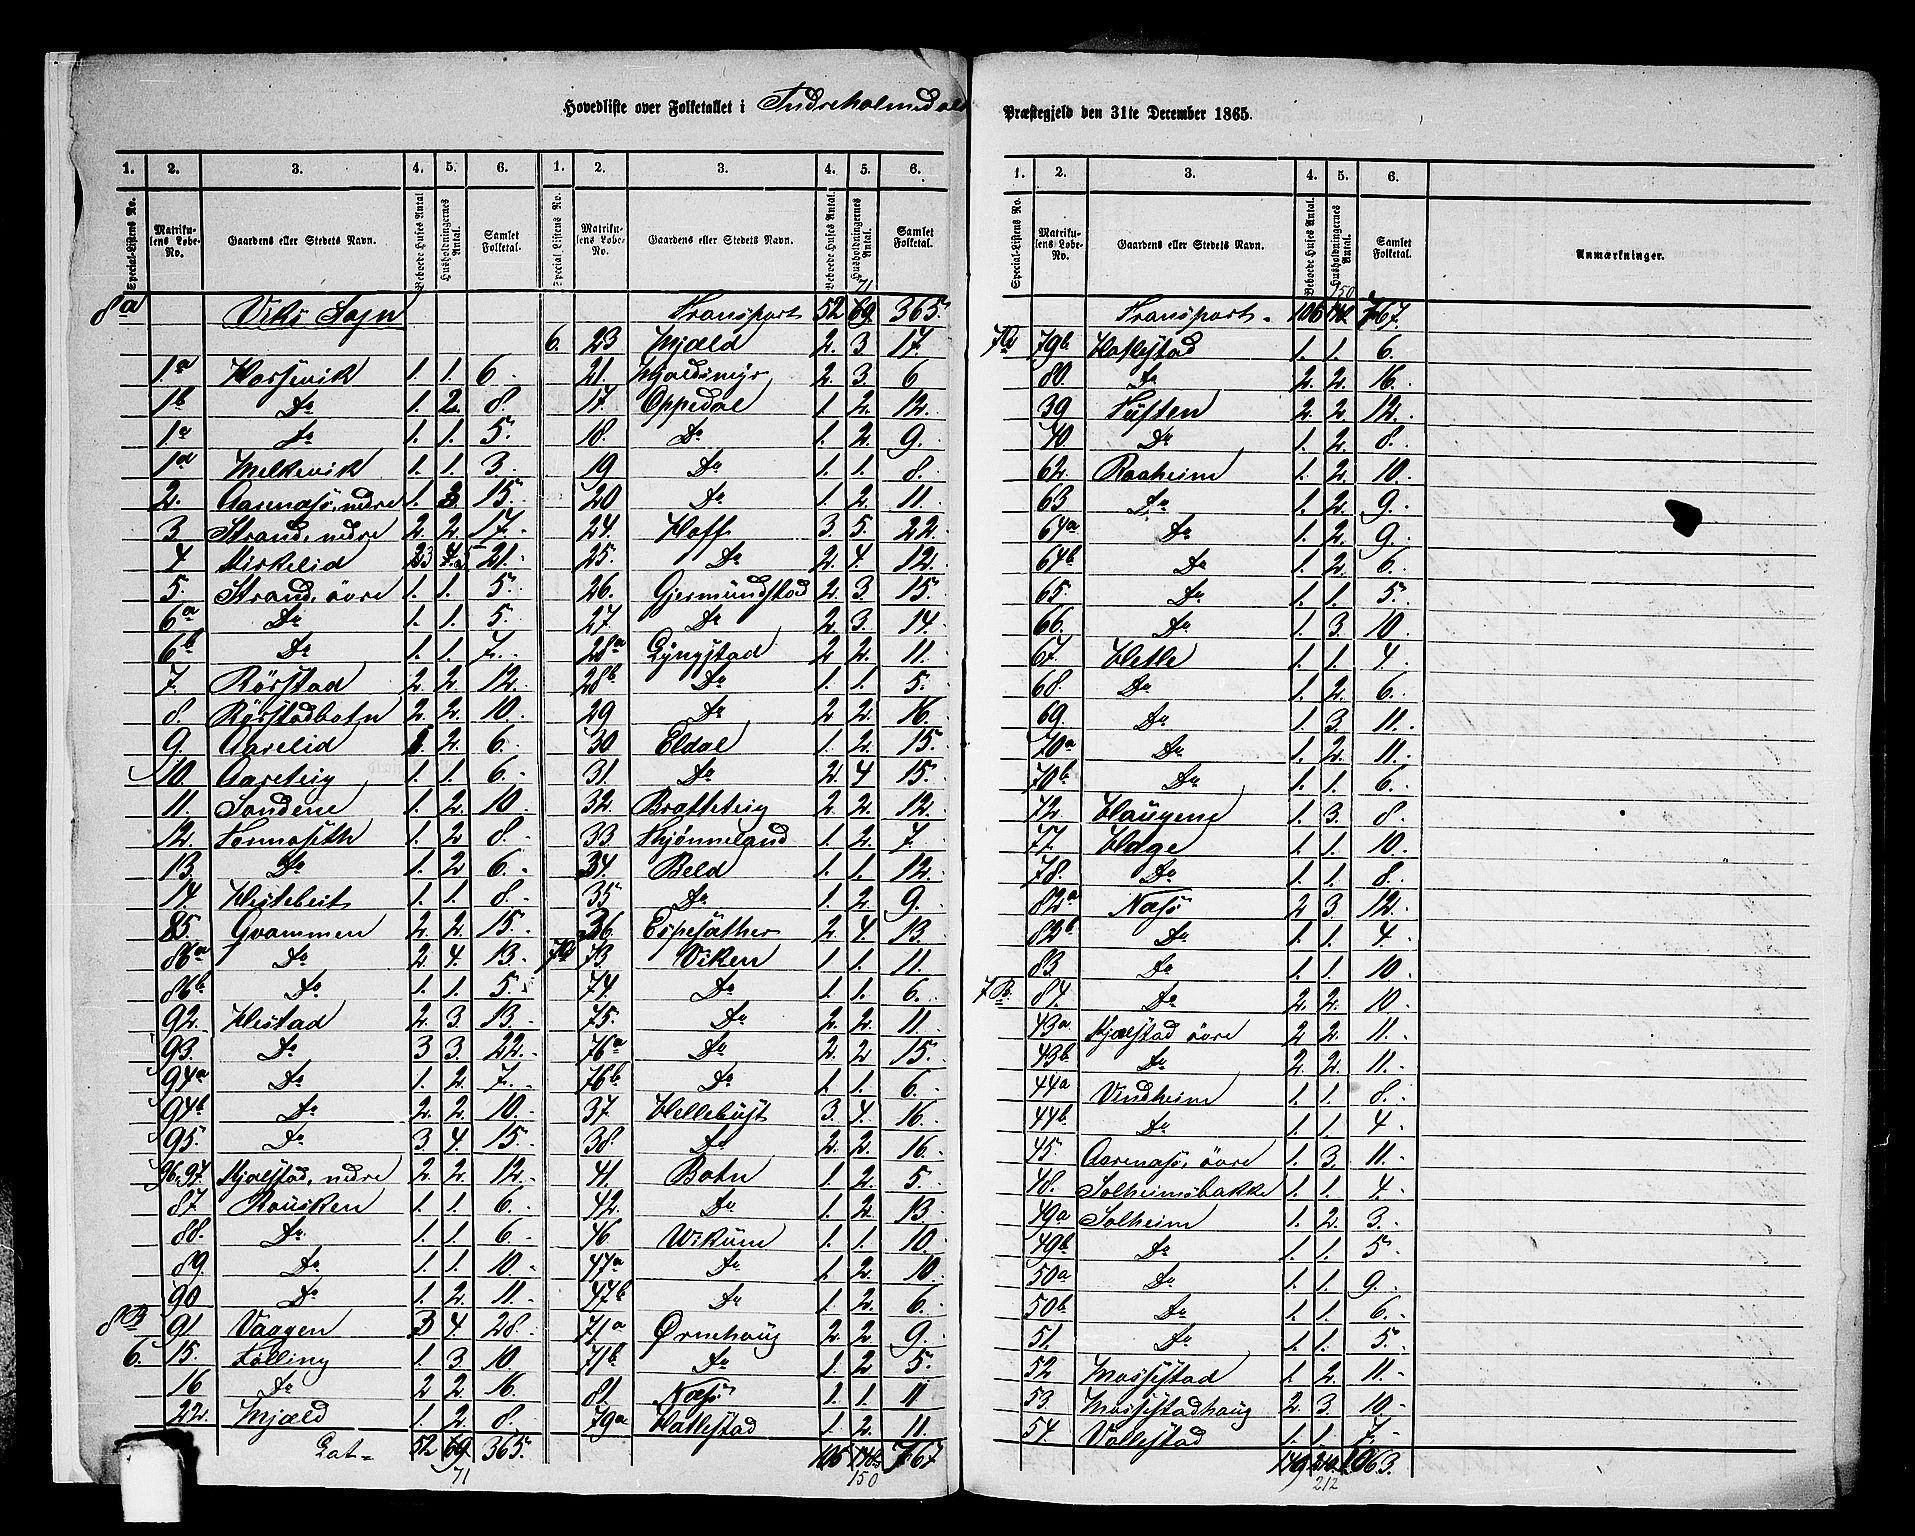 Hovedliste over Folketallet i Indreholmedal Præstegjeld den 31te December 1865.
1. 2. 3. 4. 5. 6. 1. 2. 3. 4. 5. 6.
Special-Listens No. Matrikulens Løbe-No. Gaardens eller Stedets Navn. Beboede Huses Antal Husholdningernes Antal. Samlet Folketal. Special-Listens No. Matrikulens Løbe-No. Gaardens eller Stedets Navn. Beboede Huses Antal. Husholdningernes Antal. Samlet Folketal.
8a Viks Sogn
1a Horsevik 1. 1. 6
1b Do 1. 2. 8.
1a Do 1. 1. 5.
1d Melkevik 1. 1. 3.
2. Aarenæs, nedre 1. 15.
3 Strand, nedre 2. 2. 17.
4 Mirkelid 21.
5. Strand, övre 1. 1. 5.
6a Do 1. 1. 5.
6b Do 1. 1. 7.
7. Rörstad 2. 2. 12.
8. Rörstadbotn 2. 2. 10.
9. Aarelid 1. 2. 6.
10. Aarteig 1. 1. 6.
11. Sandene 1. 2. 10.
12. 1. 2 8.
13. Do 1. 2 6.
14. Hestebeit 1. 1. 8.
85. Gvammen 2. 2. 15.
86a Do 2. 4. 13.
86b Do 1. 1. 5.
92. Hestad 2. 3. 13.
93. Do 3 3. 22.
94a Do 1. 2. 7.
94b Do 2. 2. 10.
95. Do 3 4. 15.
96,97. Mjælstad, nedre 2. 2. 12.
87. Rousken 1. 1. 6.
88. Do 1. 1. 6
89. Do 1. 1. 10.
90 Do 1. 2. 11.
8B 91 Vaagen 3 4. 28.
6. 15. Lølling 1. 3. 10.
16 Do 2 2. 16.
22. Mjæld 1. 2. 8.
Lat. 52 69. 365.
71
71
Transport 52 69. 365
6. 23 Mjæld 2. 3. 17.
21. Mjældsmyr 2. 3. 6
17. Oppedal 1. 2. 12.
18. Do 1. 2. 9.
19 Do 1. 1. 8.
20 Do 1. 2. 11.
24. Hoff 3. 5. 22.
25. Do 2. 4. 12.
26. Gjermundstad 2. 3. 15.
27. Do 2. 3. 14.
28a Lyngstad 2 2. 11.
28b Do 1. 1. 5.
29 Do 2 2. 16.
30 Eldal 1. 2. 15.
31. Do 2. 4 15.
32. Bratteteig 2. 2. 12.
33. Kjønneland 1. 2. 7.
34. Beld 1. 1. 12.
35 Do 1. 2 9.
36. Espesæther 2. 4. 13.
73 Viken 1. 1. 11.
74. Do 1. 1. 6.
75. Do 2. 2. 11.
76a Do 2. 2 15.
76b Do 1. 1. 6.
37. Hellebüst 3. 4. 16.
38. Do 2. 2. 16
41. Botn 1. 2. 5.
42. Do 1. 2. 13.
46 Vikum 1. 1. 10.
47a Do 1. 2. 10
47b Do 1. 2. 6.
71a Ørnehaug 2. 2. 9.
71b Do 1. 2 5.
81 Næss 1. 1. 11
79a Hallestad 1. 2. 11.
767
150
1. 2. 3. 4. 5. 6.
Special-Listens No. Matrikulens Løbe-No. Gaardens eller Stedets Navn. Beboede Huses Antal. Husholdningernes Antal. Samlet Folketal. Anmærkninger.
150
Transport. 106 767.
79b Hallestad 1. 1. 6.
80. Do 2. 2. 16.
39 2. 2. 12.
40. Do 1. 2. 8.
62. Raaheim 1. 2. 10.
63 Do 1. 2. 9.
64a Do 1. 2. 9.
64b Do 1. 2. 6.
65. Do 1. 1. 5.
66. Do 1. 3. 10.
67. Hetle 1. 1. 4
68. Do 1. 2. 6.
69. Do 1. 3. 11.
70a Do 1. 2. 11.
70b Do 1. 1. 6.
72. Haügene 1. 3. 8.
77. Hage 1. 1. 10.
78. Do 1. 1. 8.
82a Næss 2 3. 12.
82b Do 1. 1. 4.
83 Do 1. 1. 10
7B. 84. Do 2. 2. 10
43a Mjælstad övre 2 2. 11.
43b Do 2. 2. 11.
44a Vindheim 1. 1. 8.
44b Do 1. 1. 4
45. Aarenæs, övre 1. 3. 11.
48. Solheimsbakke 1. 1. 4.
49a Solheim 1. 2. 3.
49b Do 1. 1. 5
50a Do 1. 1. 9.
50b Do 1. 1. 6.
51. Do 1. 1. 5.
52 Mossestad 1. 2. 11.
53 Mossestadhaug 2. 3. 10
54. Vallestad 1. 1. 7.
149 210 1063.
212